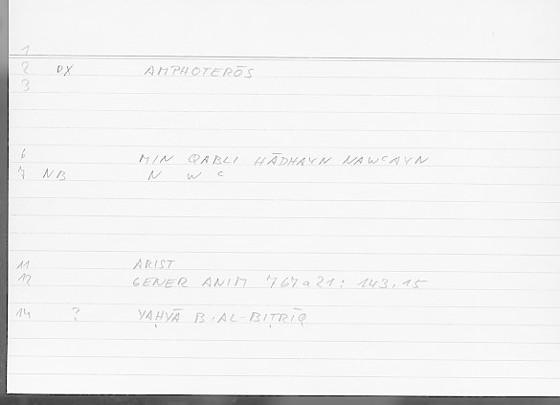 1
2 DX AMPHOTERŌS
3
6 MIN QABLI HĀDHAYN NAWʿAYN
7 NB N W ʿ
11 ARIST
12 GENER ANIM 767a21: 143,15
14 ? YAḤYĀ B. AL-BIṬRĪQ